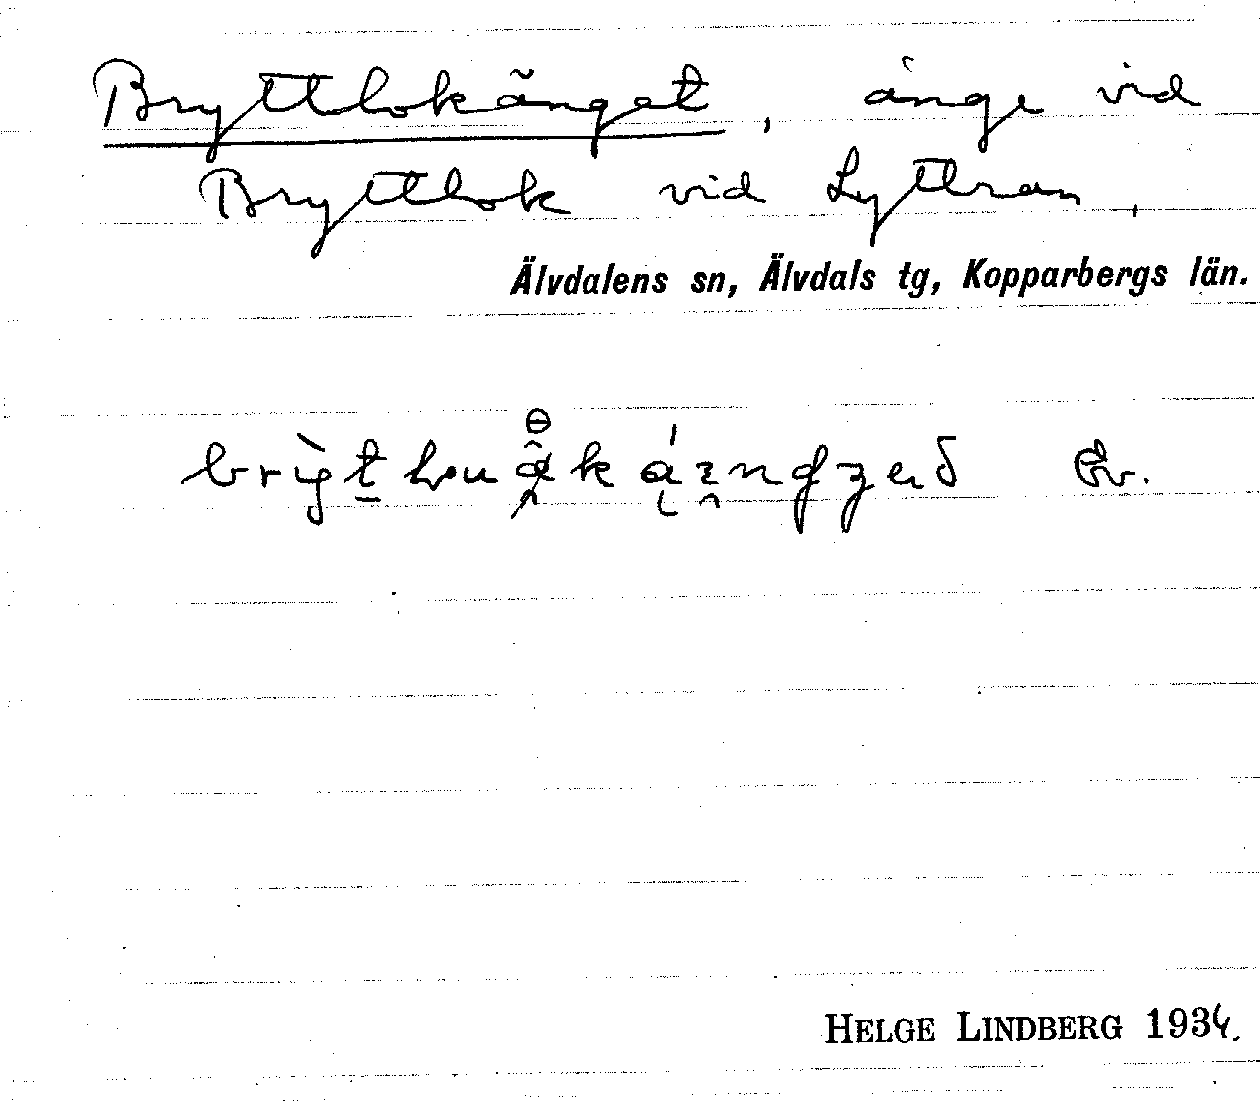 Bryttlokänget, änge vid
Bryttlok vid Lyttran,
Älvdalens sn, Älvdals tg, Kopparbergs län.
HELGE LINDBERG 1934.